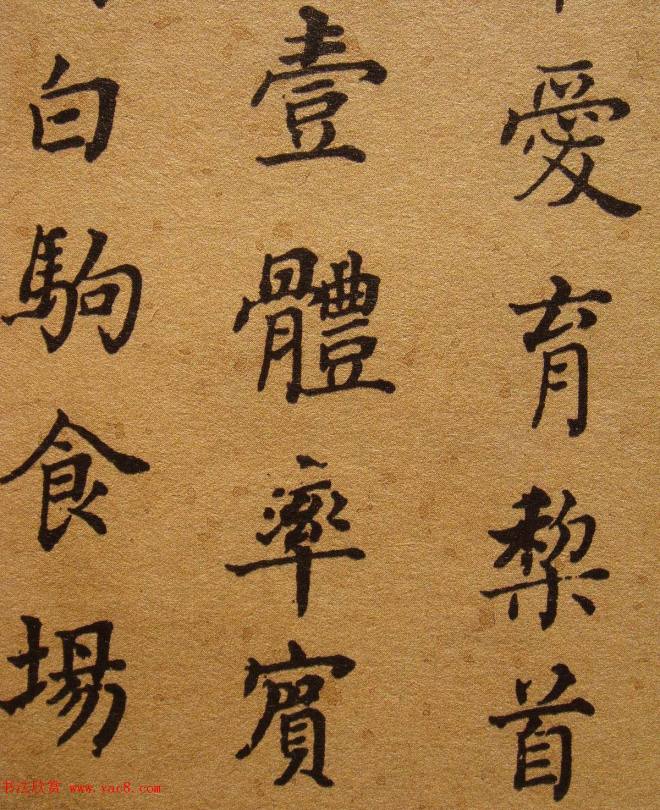 愛育黎首
壹體率賓
白駒食場
书法欣赏 www.yac8.com